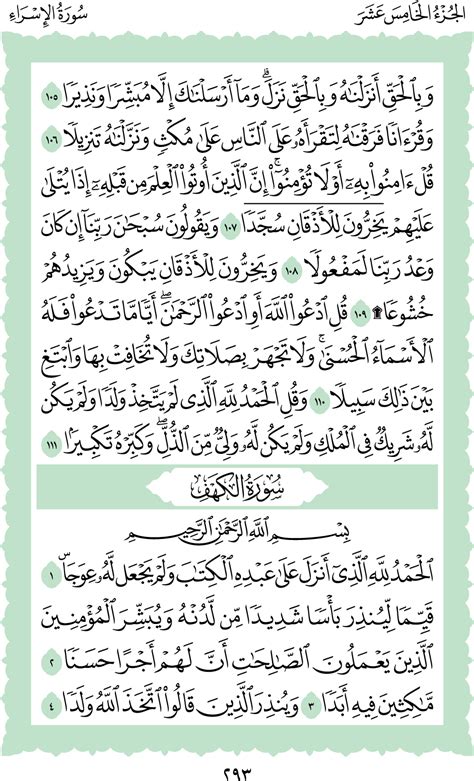 الجُزْءُ الخَامِسَ عَشَرَ سُورَةُ الإِسْرَاءِ
وَبِٱلْحَقِّ أَنزَلْنَٰهُ وَبِٱلْحَقِّ نَزَلَۗ وَمَآ أَرْسَلْنَٰكَ إِلَّا مُبَشِّرًا وَنَذِيرًا ١٠٥
وَقُرْءَانًا فَرَقْنَٰهُ لِتَقْرَأَهُۥ عَلَى ٱلنَّاسِ عَلَىٰ مُكْثٍ وَنَزَّلْنَٰهُ تَنزِيلًا ١٠٦
قُلْ ءَامِنُوا۟ بِهِۦٓ أَوْ لَا تُؤْمِنُوٓا۟ۚ إِنَّ ٱلَّذِينَ أُوتُوا۟ ٱلْعِلْمَ مِن قَبْلِهِۦٓ إِذَا يُتْلَىٰ
عَلَيْهِمْ يَخِرُّونَ لِلْأَذْقَانِ سُجَّدًا ١٠٧ وَيَقُولُونَ سُبْحَٰنَ رَبِّنَآ إِن كَانَ
وَعْدُ رَبِّنَا لَمَفْعُولًا ١٠٨ وَيَخِرُّونَ لِلْأَذْقَانِ يَبْكُونَ وَيَزِيدُهُمْ
خُشُوعًا ۩ ١٠٩ قُلِ ٱدْعُوا۟ ٱللَّهَ أَوِ ٱدْعُوا۟ ٱلرَّحْمَٰنَۖ أَيًّا مَّا تَدْعُوا۟ فَلَهُ
ٱلْأَسْمَآءُ ٱلْحُسْنَىٰۚ وَلَا تَجْهَرْ بِصَلَاتِكَ وَلَا تُخَافِتْ بِهَا وَٱبْتَغِ
بَيْنَ ذَٰلِكَ سَبِيلًا ١١٠ وَقُلِ ٱلْحَمْدُ لِلَّهِ ٱلَّذِى لَمْ يَتَّخِذْ وَلَدًا وَلَمْ يَكُن
لَّهُۥ شَرِيكٌ فِى ٱلْمُلْكِ وَلَمْ يَكُن لَّهُۥ وَلِىٌّ مِّنَ ٱلذُّلِّۖ وَكَبِّرْهُ تَكْبِيرًۢا ١١١
سُورَةُ الكَهْفِ
بِسْمِ ٱللَّهِ ٱلرَّحْمَٰنِ ٱلرَّحِيمِ
ٱلْحَمْدُ لِلَّهِ ٱلَّذِىٓ أَنزَلَ عَلَىٰ عَبْدِهِ ٱلْكِتَٰبَ وَلَمْ يَجْعَل لَّهُۥ عِوَجَاۜ ١
قَيِّمًا لِّيُنذِرَ بَأْسًا شَدِيدًا مِّن لَّدُنْهُ وَيُبَشِّرَ ٱلْمُؤْمِنِينَ
ٱلَّذِينَ يَعْمَلُونَ ٱلصَّٰلِحَٰتِ أَنَّ لَهُمْ أَجْرًا حَسَنًا ٢
مَّٰكِثِينَ فِيهِ أَبَدًا ٣ وَيُنذِرَ ٱلَّذِينَ قَالُوا۟ ٱتَّخَذَ ٱللَّهُ وَلَدًا ٤
٢٩٣